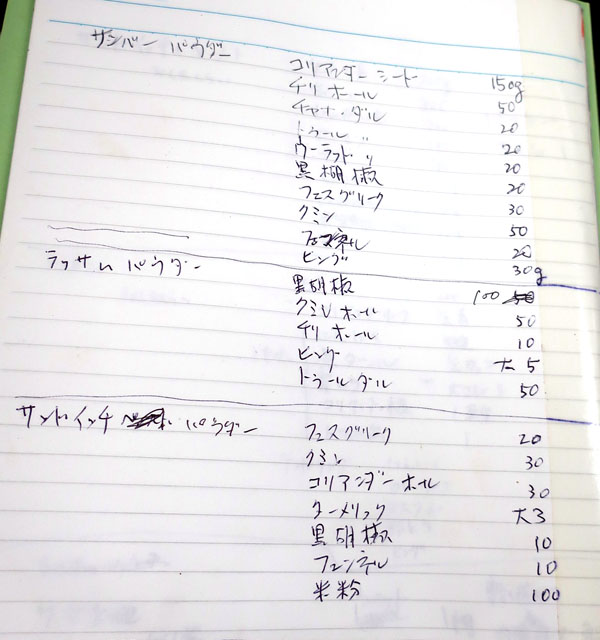 サンバー パウダー
コリアンダー シード 150g
チリ ホール 50
チャナ・ダル 20
トゥール 〃 20
ウーラッド 〃 20
黒胡椒 20
フェヌグリーク 30
クミン 50
フェンネル 20
ヒング 30g
ラッサム パウダー
黒胡椒 100 50
クミン ホール 50
チリ ホール 10
ヒング 大5
トゥール ダル 50
サンドイッチ パウダー
フェヌグリーク 20
クミン 30
コリアンダー ホール 30
ターメリック 大3
黒胡椒 10
フェンネル 10
米粉 100